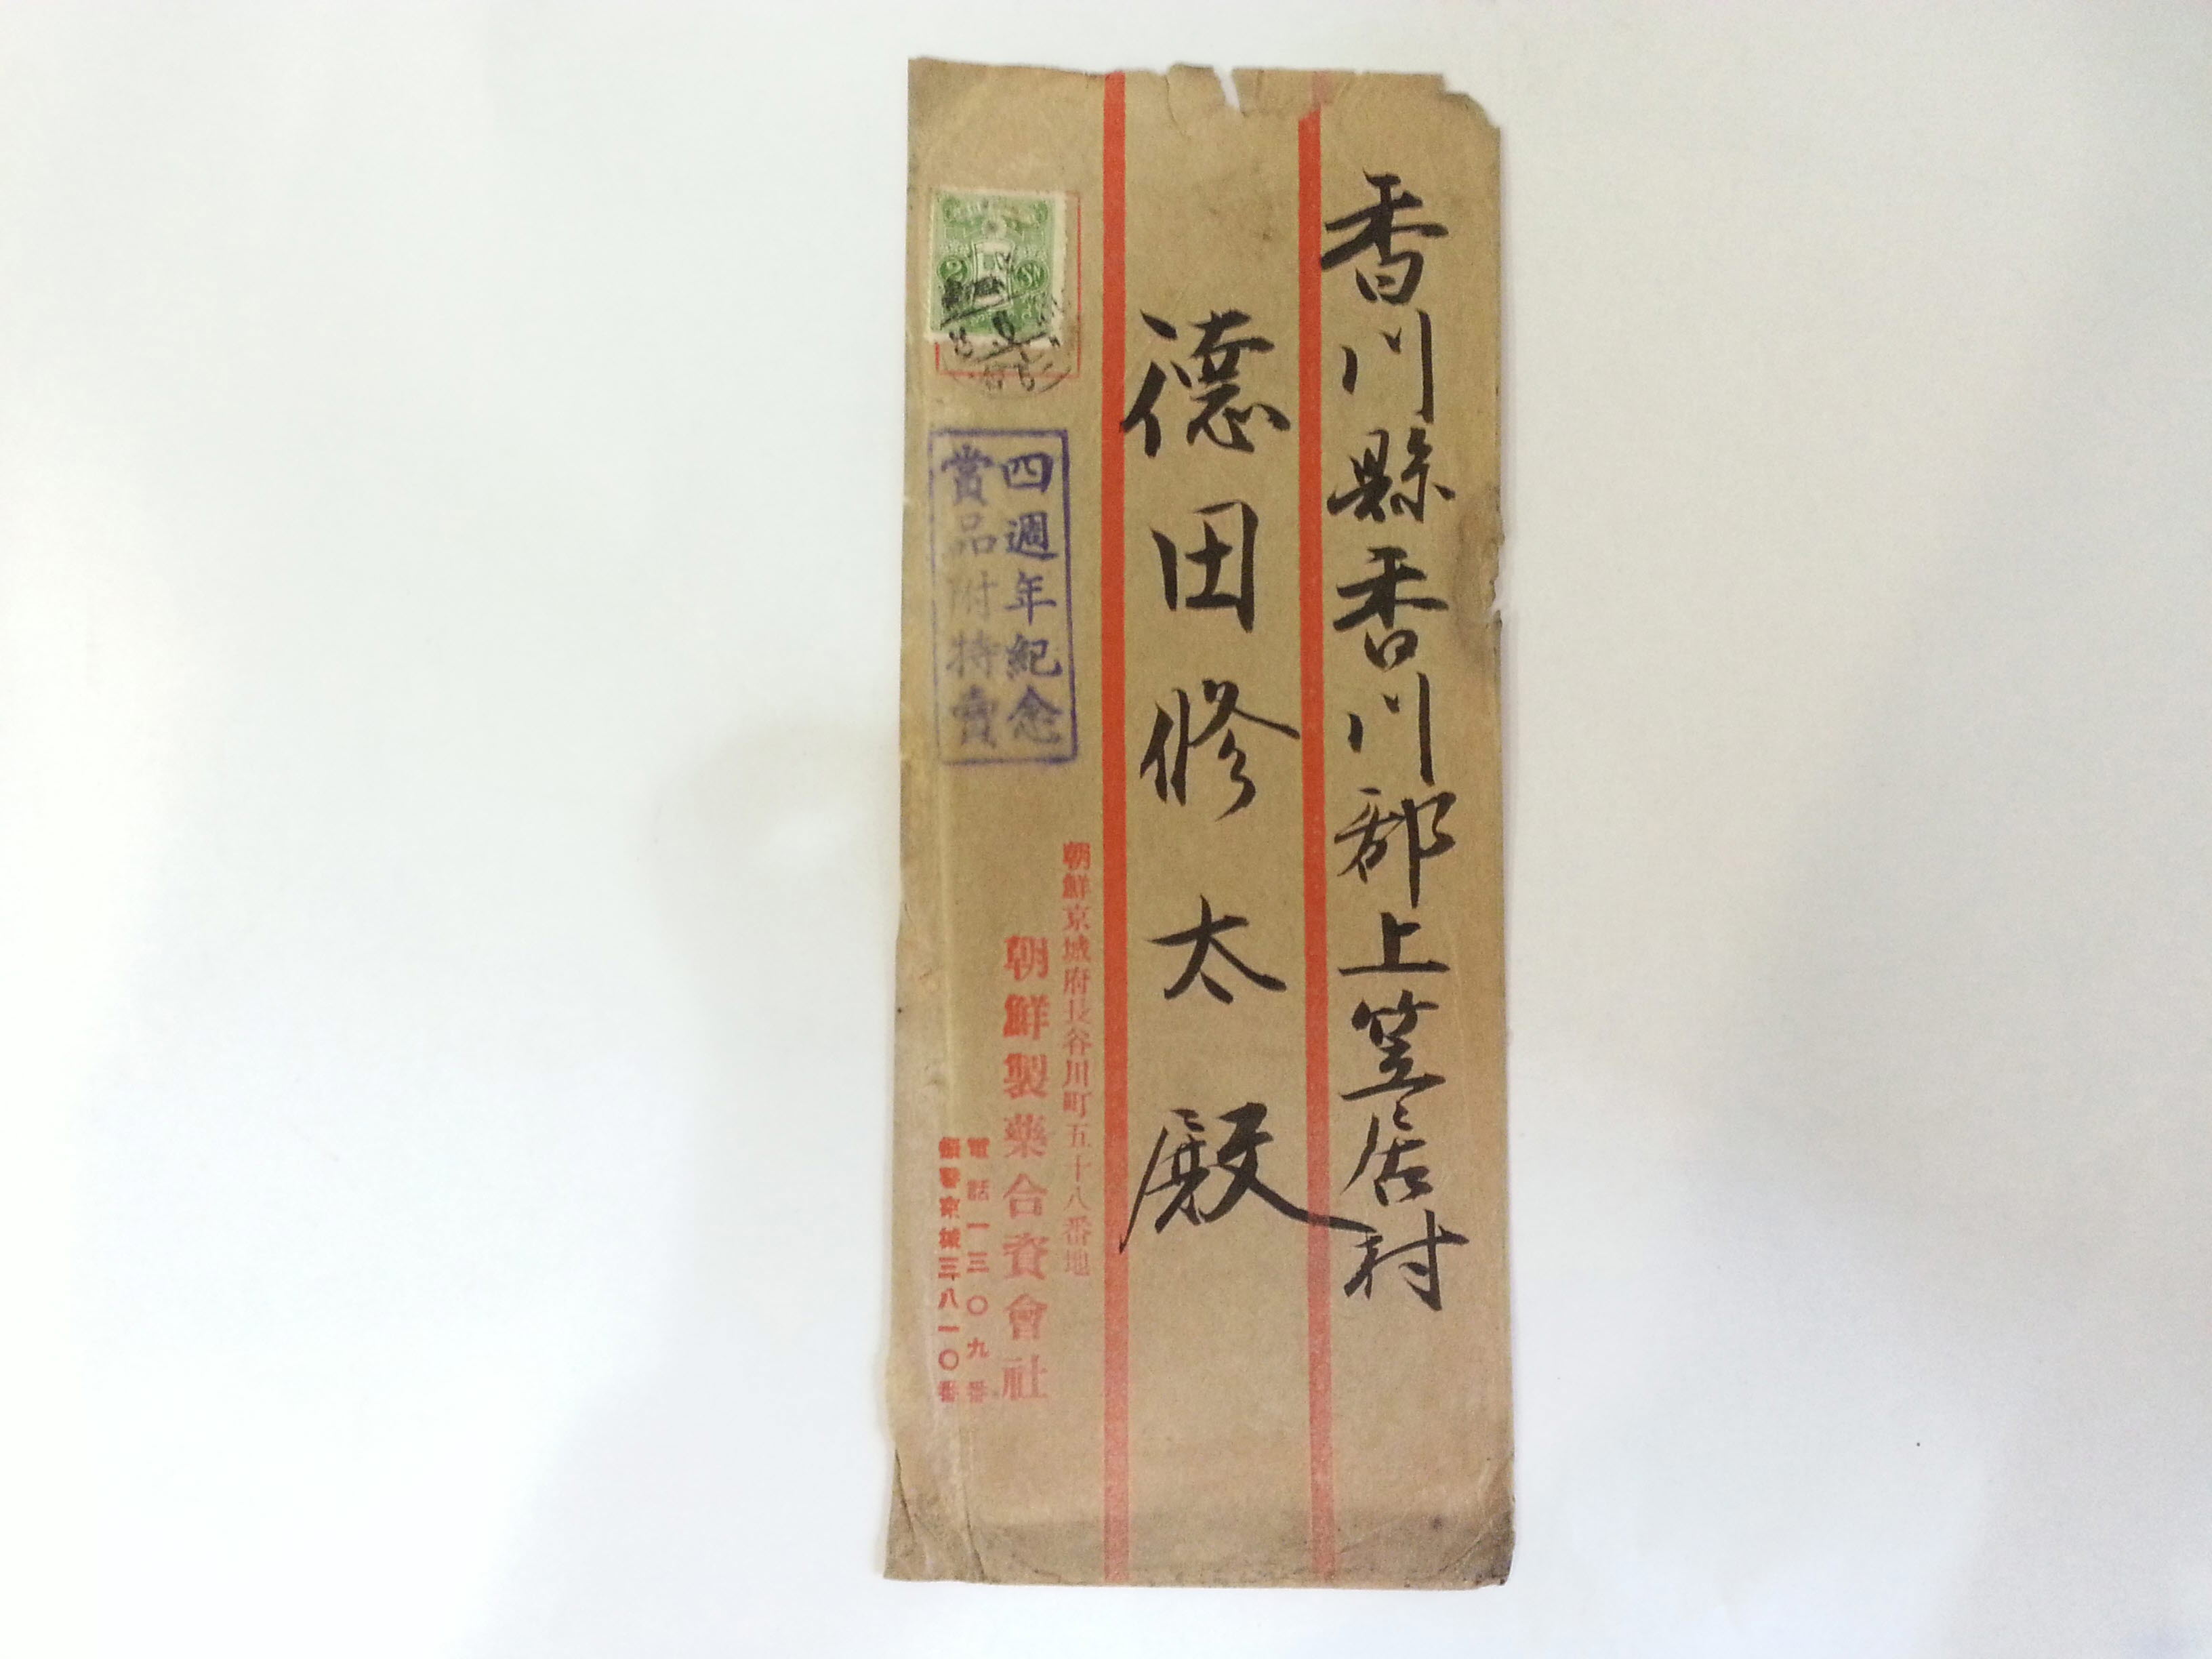 香川縣香川郡上笠居村
德田修太殿
四週年紀念
賞品附特賣
朝鮮京城府長谷川町五十八番地
朝鮮製藥合資會社
電話一三〇九番
振替京城三八一〇番
2 SN